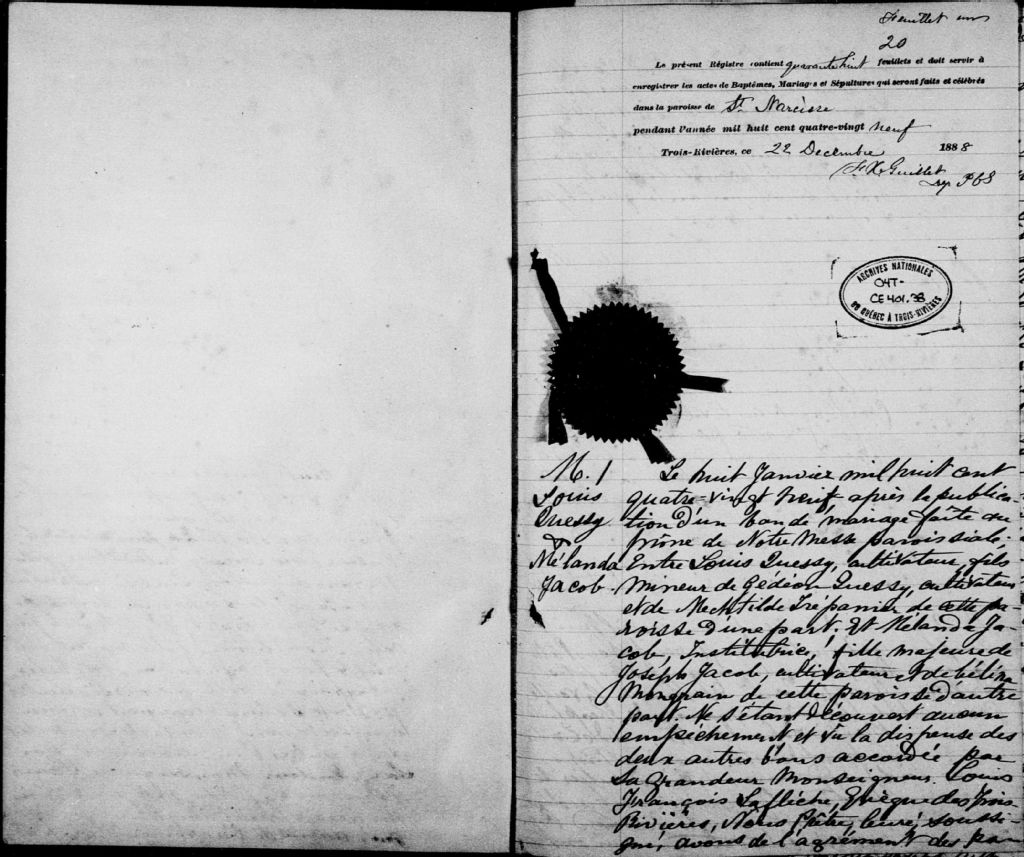 Feuillet un
20
Le présent Régistre contient quarante huit feuillets et doit servir à
enregistrer les actes de Baptêmes, Mariages et Sépultures qui seront faits et célébrés
dans la paroisse de St. Narcisse
pendant l'année mil huit cent quatre-vingt neuf
Trois-Rivières, ce 22 Decembre 1888
F. X. Guillet
Dep. P C S
ARCHIVES NATIONALES
04T-
CE 401.38
DU QUÉBEC À TROIS-RIVIÈRES
M. 1
Louis
Quessy
&
Mélanda
Jacob.
Le huit Janvier mil huit cent
quatre-vingt neuf après la publica-
tion d'un ban de mariage faite au
prône de Notre Messe paroissiale.
Entre Louis Quessy, cultivateur, fils
Mineur de Gédéon Quessy, cultivateur
et de Mechtilde Trépanier de cette pa-
roisse d'une part; Et Mélanda Ja-
cob, Institutrice, fille majeure de
Joseph Jacob, cultivateur et de Célina
Mongrain de cette paroisse d'autre
part. Ne s'étant découvert aucun
empêchement et vu la dispense des
deux autres bans accordée par
Sa Grandeur Monseigneur Louis
François Laflèche, Evèque des Trois
Rivières, Nous Prêtre, Curé, soussi-
gné, avons de l'agrément des pa